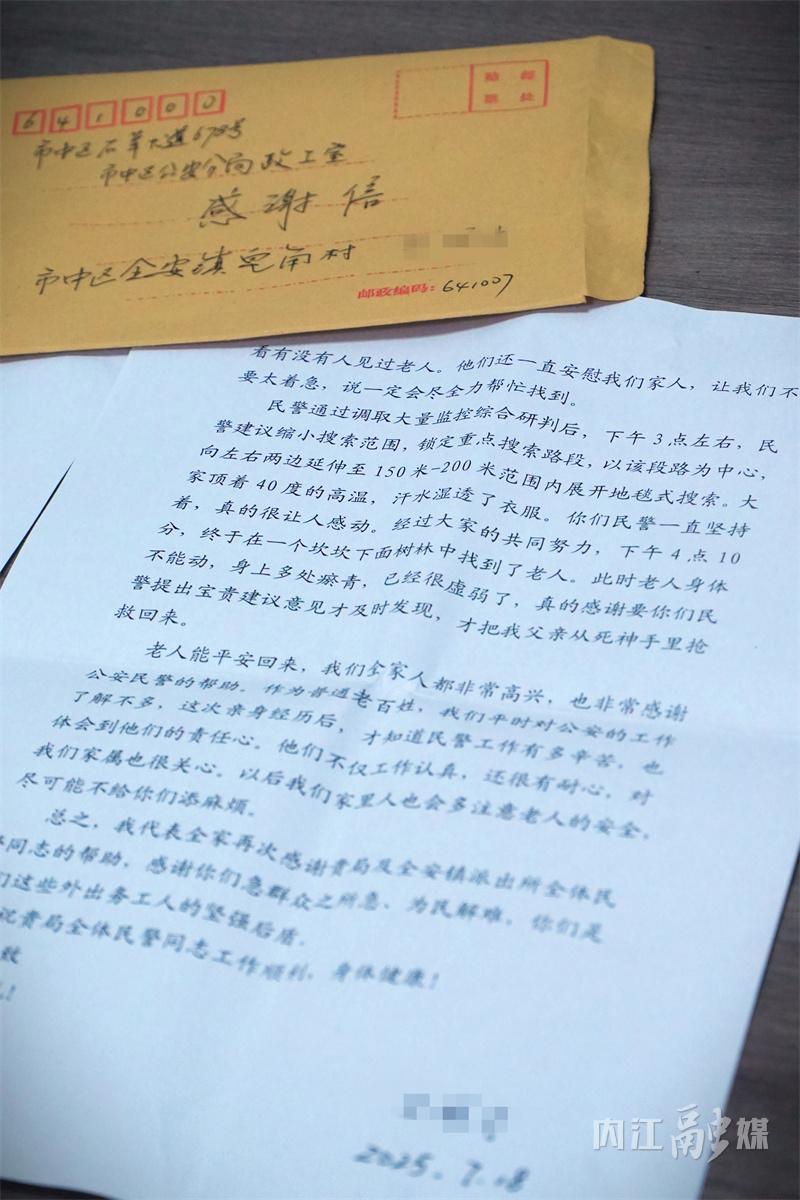 641000
贴 邮
票 处
市中区石羊大道678号
市中区公安分局政工室
感谢信
市中区全安镇皂角村
邮政编码：641007
看有没有人见过老人。他们还一直安慰我们家人，让我们不
要太着急，说一定会尽全力帮忙找到。
民警通过调取大量监控综合研判后，下午3点左右，民
警建议缩小搜索范围，锁定重点搜索路段，以该段路为中心，
向左右两边延伸至150米-200米范围内展开地毯式搜索。大
家顶着40度的高温，汗水湿透了衣服。你们民警一直坚持
着，真的很让人感动。经过大家的共同努力，下午4点10
分，终于在一个坎坎下面树林中找到了老人。此时老人身体
不能动，身上多处瘀青，已经很虚弱了，真的感谢要你们民
警提出宝贵建议意见才及时发现，才把我父亲从死神手里抢
救回来。
老人能平安回来，我们全家人都非常高兴，也非常感谢
公安民警的帮助。作为普通老百姓，我们平时对公安的工作
了解不多，这次亲身经历后，才知道民警工作有多辛苦，也
体会到他们的责任心。他们不仅工作认真，还很有耐心，对
我们家属也很关心。以后我们家里人也会多注意老人的安全，
尽可能不给你们添麻烦。
总之，我代表全家再次感谢贵局及全安镇派出所全体民
同志的帮助，感谢你们急群众之所急、为民解难，你们是
们这些外出务工人的坚强后盾。
祝贵局全体民警同志工作顺利，身体健康！
致
礼！
2025.7.18
内江融媒